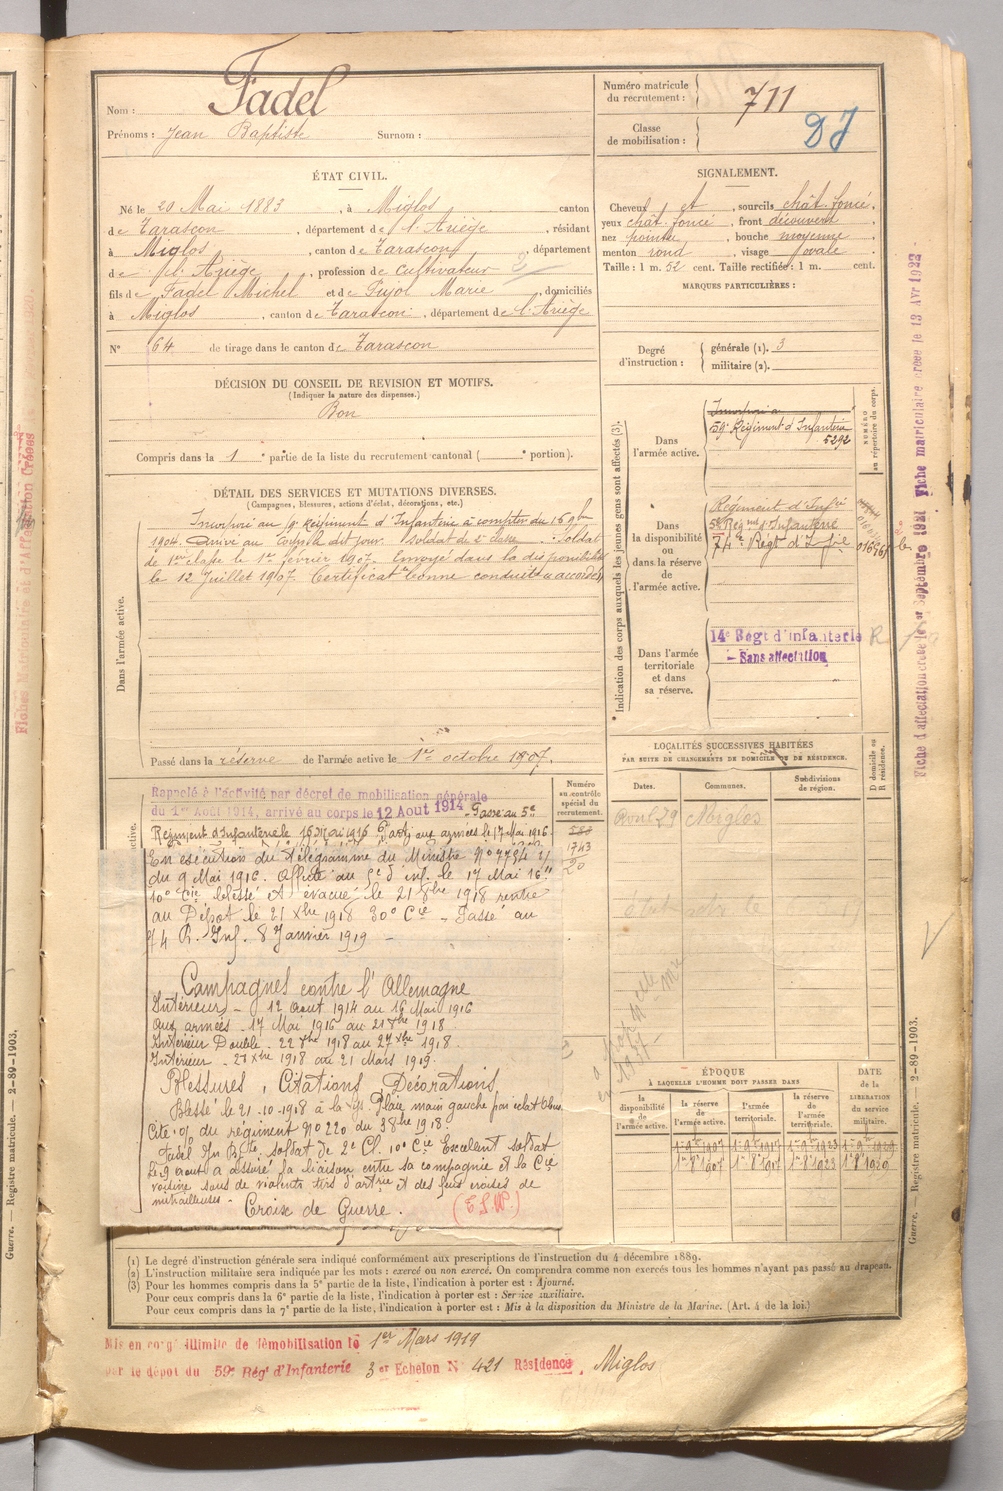 Nom : Fadel
Prénoms : Jean Baptiste Surnom :
Numéro matricule du recrutement : 711
Classe de mobilisation :
ÉTAT CIVIL.
Né le 20 Mai 1883, à Miglos canton
de Tarascon, département de l'Ariège, résidant
à Miglos, canton de Tarascon, département
de l'Ariège, profession de cultivateur 2
fils de Fadel Michel et de Pujol Marie, domiciliés
à Miglos, canton de Tarascon, département de l'Ariège
N° 64 de tirage dans le canton de Tarascon
SIGNALEMENT.
Cheveux et, sourcils chât. foncé,
yeux chât. foncé, front découvert
nez pointu, bouche moyenne,
menton rond, visage ovale.
Taille : 1 m. 52 cent. Taille rectifiée : 1 m. cent.
MARQUES PARTICULIÈRES :
Degré d'instruction : générale (1). 3
militaire (2).
DÉCISION DU CONSEIL DE REVISION ET MOTIFS.
(Indiquer la nature des dispenses.)
Bon
Compris dans la 1 e partie de la liste du recrutement cantonal ( e portion).
DÉTAIL DES SERVICES ET MUTATIONS DIVERSES.
(Campagnes, blessures, actions d'éclat, décorations, etc.)
Dans l'armée active.
Incorporé au Régiment d'Infanterie à compter du 16 9bre
1904. Arrivé au Corps le dit jour. Soldat de 2e classe. Soldat
de 1re classe le 1er février 1907. Envoyé dans la disponibilité
le 12 Juillet 1907. Certificat de bonne conduite accordé
Passé dans la réserve de l'armée active le 1er octobre 1907.
Indication des corps auxquels les jeunes gens sont affectés (3).
NUMÉRO au répertoire du corps.
Dans l'armée active.
Incorporé au
59e Régiment d'Infanterie
5292
Dans la disponibilité ou dans la réserve de l'armée active.
Régiment d'Infrie
Régt d'Infanterie
74e Régt d'Infie
Dans l'armée territoriale et dans sa réserve.
14e Régt d'infanterie R
- Sans affectation
LOCALITÉS SUCCESSIVES HABITÉES
PAR SUITE DE CHANGEMENTS DE DOMICILE OU DE RÉSIDENCE.
Dates. Communes. Subdivisions de région. D domicile ou R résidence.
Avril 29 Miglos
Rappelé à l'activité par décret de mobilisation générale
du 1er Août 1914, arrivé au corps le 12 Août 1914. Passé au 5e
Régiment d'Infanterie le 16 Mai 1916 Parti aux armées le 17 Mai 1916.
Numéro au contrôle spécial du recrutement.
1743
20
En exécution du télégramme du Ministre N° 7794 1/
du 9 Mai 1916. Affecté au 5e d'inf. le 17 Mai 16
10e Cie blessé et évacué le 21 8bre 1918 rentré
au Dépôt le 21 Xbre 1918 30e Cie - Passé au
14 R. Inf. 8 Janvier 1919 -
Campagnes contre l'Allemagne
Intérieur - 12 Août 1914 au 16 Mai 1916
aux armées - 17 Mai 1916 au 21 8bre 1918.
Intérieur Doublé - 22 8bre 1918 au 27 Xbre 1918.
Intérieur - 28 Xbre 1918 au 21 Mars 1919.
Blessures, Citations Décorations
Blessé le 21-10-1918 à la Plaie main gauche par éclat Obus
Cité o/ du régiment N° 220 du 3 8bre 1918
Fadel Jn Bte soldat de 2e Cl. 10e Cie Excellent soldat
Le 9 août a assuré la liaison entre sa compagnie et la Cie
voisine sous de violents tirs d'artrie et des feux croisés de
mitrailleuses -
Croix de Guerre.
ÉPOQUE
À LAQUELLE L'HOMME DOIT PASSER DANS
DATE de la LIBÉRATION du service militaire.
la disponibilité de l'armée active. la réserve de l'armée active. l'armée territoriale. la réserve de l'armée territoriale.
1er 8bre 1907 1er 8bre 1917 1er 8bre 1923 1er 8bre 1929
(1) Le degré d'instruction générale sera indiqué conformément aux prescriptions de l'instruction du 4 décembre 1889.
(2) L'instruction militaire sera indiquée par les mots : exercé ou non exercé. On comprendra comme non exercés tous les hommes n'ayant pas passé au drapeau.
(3) Pour les hommes compris dans la 5e partie de la liste, l'indication à porter est : Ajourné.
Pour ceux compris dans la 6e partie de la liste, l'indication à porter est : Service auxiliaire.
Pour ceux compris dans la 7e partie de la liste, l'indication à porter est : Mis à la disposition du Ministre de la Marine. (Art. 4 de la loi.)
Mis en congé illimité de démobilisation le 1er Mars 1919
par le dépôt du 59e Rég' d'Infanterie 3 er Echelon N° 421 Résidence Miglos
Fiche d'affectation créée le 1er Septembre 1921 Fiche matriculaire créée le 13 Avr 1922
Guerre. — Registre matricule. — 2-89-1903.
Guerre. — Registre matricule. — 2-89-1903.